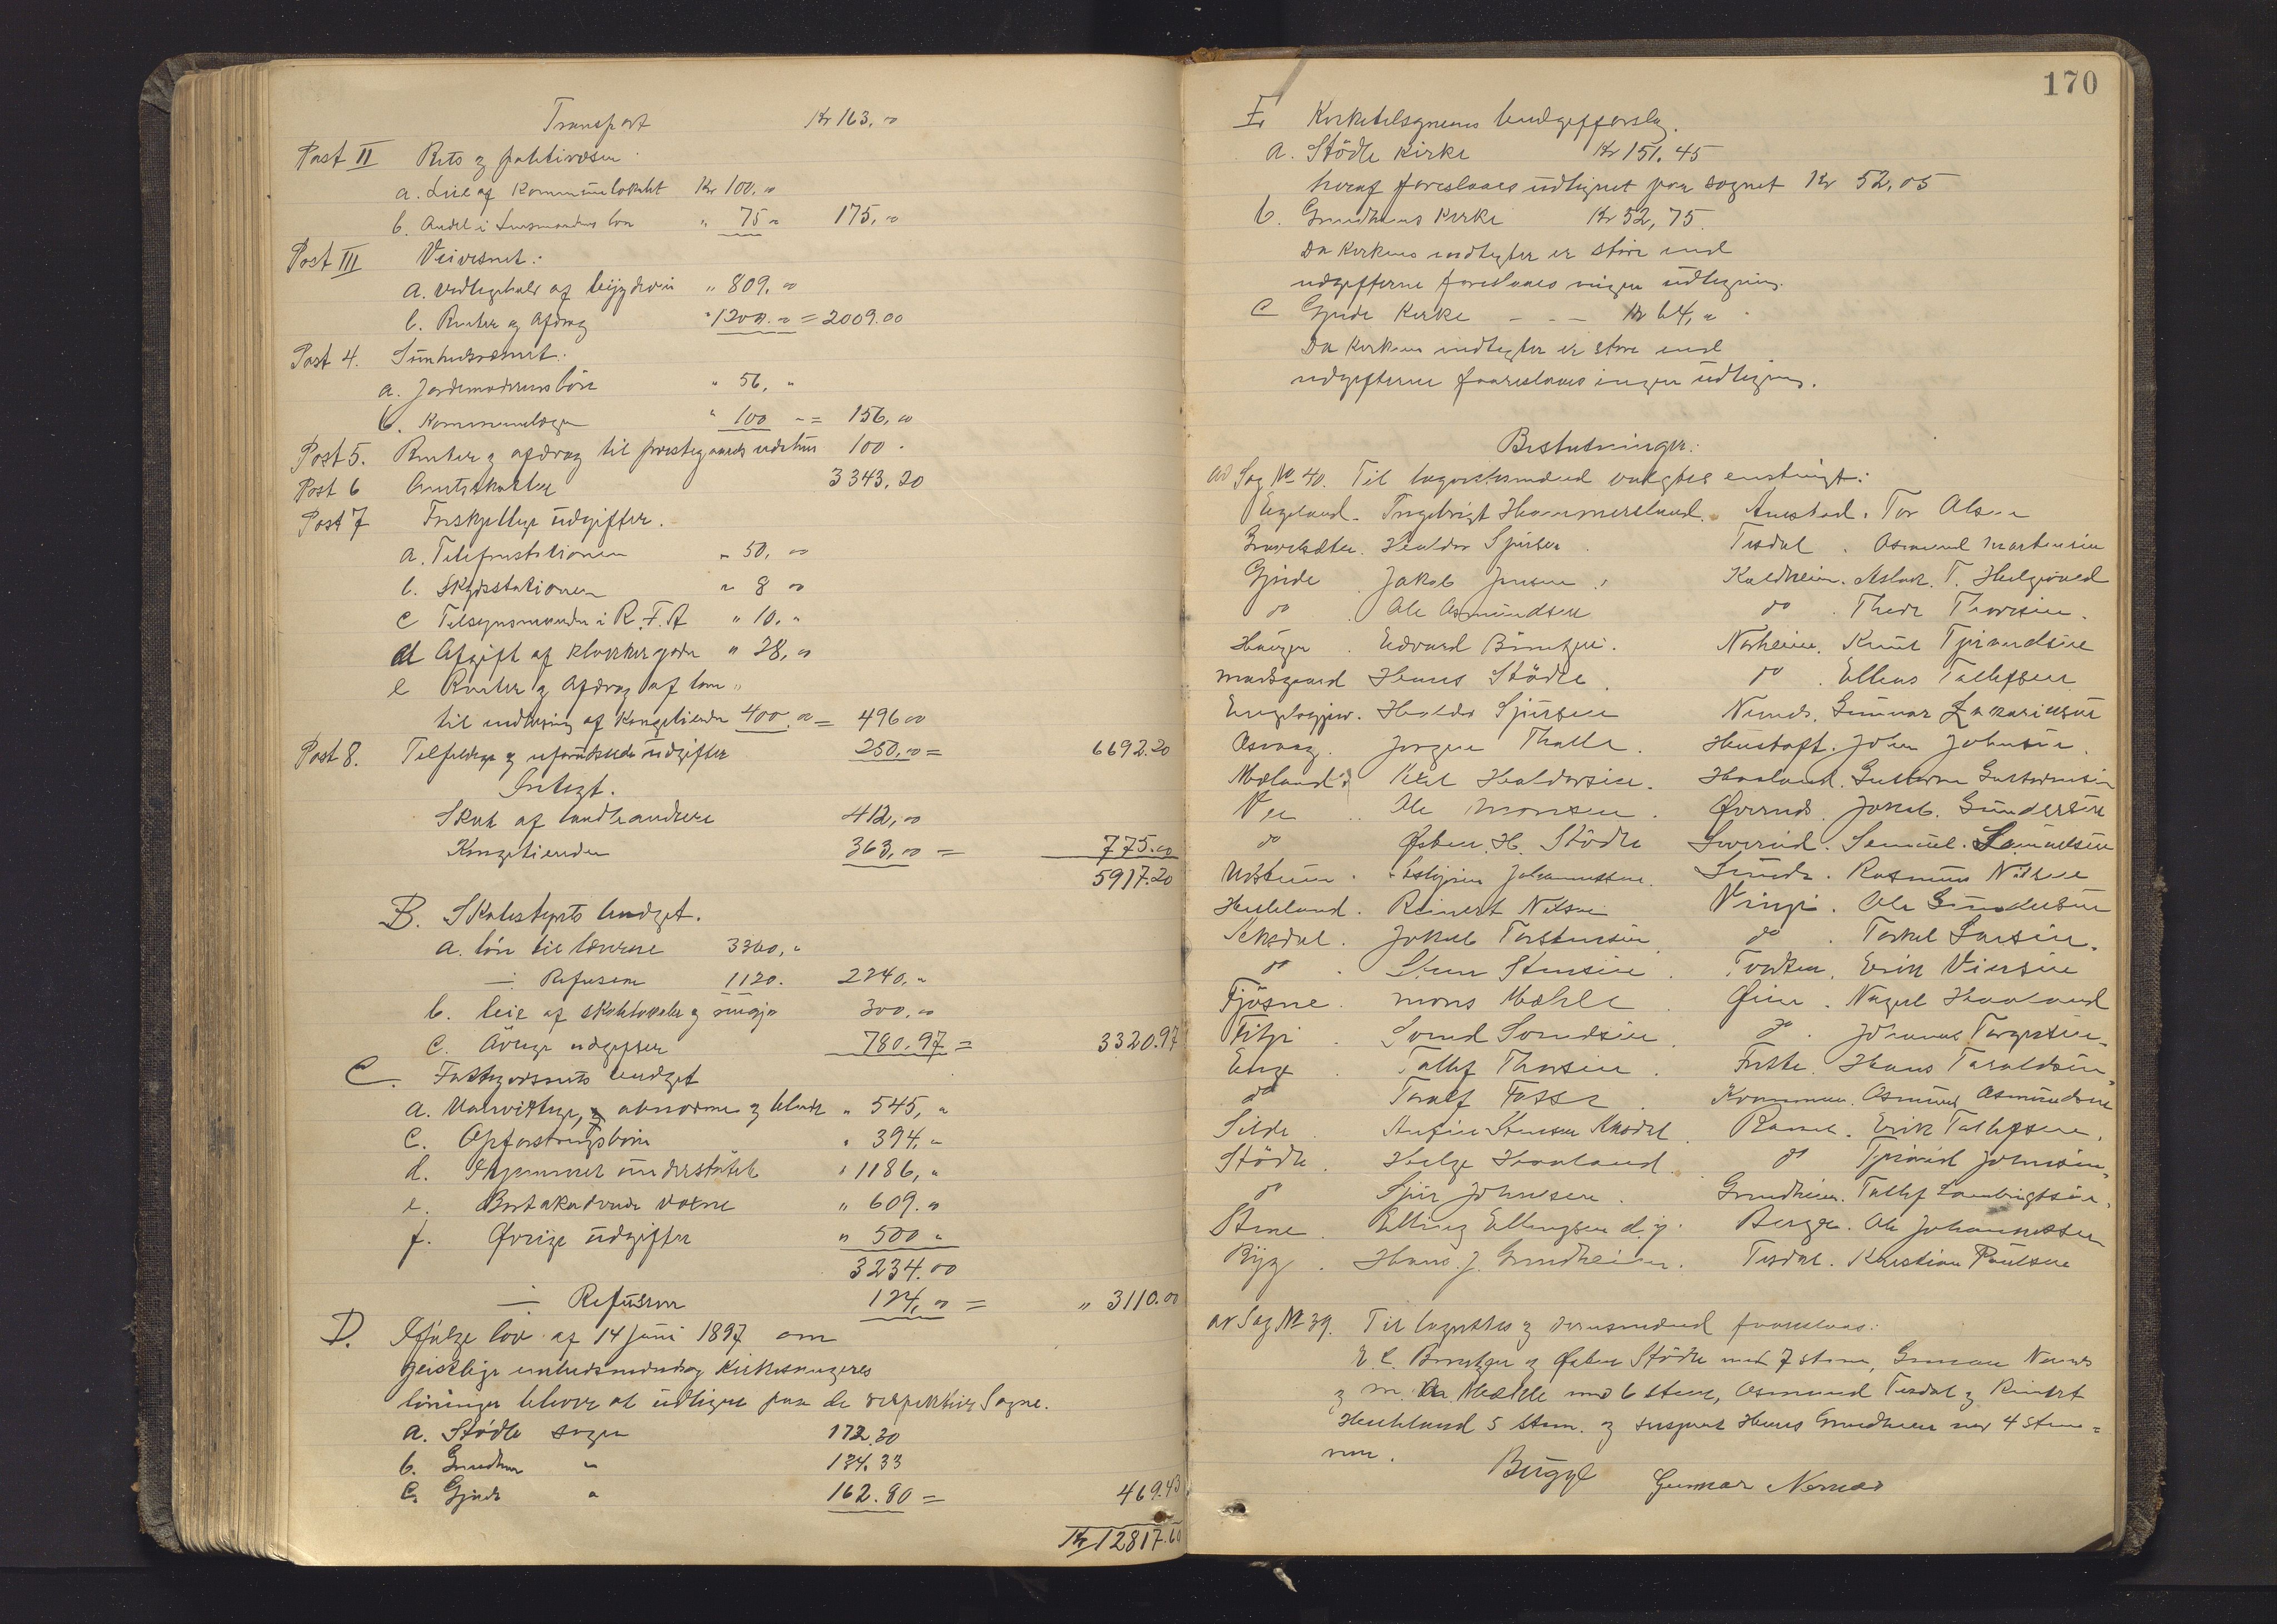 Transport Kr 163,00
Post II Rets og politivæsen.
a. Leie af Kommunelokalet Kr 100.00
b. Andel i Lensmandens løn " 75 " 175,00
Post III Veivesnet:
a. Vedligehold af bygdevei " 809.00
b. Renter og Afdrag " 1200.00 = 2009.00
Post 4. Sundhedsvæsnet.
a. Jordemoderens løn " 56, "
b. Kommunelægen " 100 " = 156,00
Post 5. Renter og afdrag til prestegaards udhus 100.
Post 6 Amtsskatter 3343.20
Post 7 Forskjellige udgifter.
a. Telefonstationen " 50,00
b. Skydsstationen " 8 00
c Tilsynsmanden i R.F.A " 10, "
d Afgift af klokkergaden " 28,00
e Renter og Afdrag af laan "
til indløsning af Kongetienden 400.00 = 496 00
Post 8. Tilfeldige og uforudseede udgifter 250,00 = 6692.20
Indtægt.
Skat af landhandlere 412,00
Kongetienden 363,00 = 775.00
5917.20
B. Skolestyrets budget.
a. løn til lærerne 3360, "
÷ Refusion 1120. 2240, "
b. leie af skolelokaler og 300,00
c. Øvrige udgifter 780.97 = 3320.97
C. Fattigvesnets budget
a. Vanvittige, abnorme og blinde " 545, "
c. Opfostringsbørn " 394, "
d. Hjemmet understøttet " 1186, "
e. Bortakorderede voxne " 609. "
f. Øvrige udgifter " 500 "
3234.00
÷ Refusion 124,00 = " 3110.00
D. Ifølge lov af 14 Juni 1897 om
geistlige embedsmænds og Kirkesangeres
lønninger behøver at udlignes paa de respektive Sogne.
a. Stødle sogn 172.30
b. Grindheim " 134.33
c. Gjerde " 162.80 = 469.43
Kr 12817.60
170
E. Kirketilsynenes budgetforslag.
a. Stødle Kirke Kr 151.45
heraf foreslaaes udlignet paa sognet Kr 52,05
b. Grindheims Kirke Kr 52,75.
Da Kirkens indtegter er større end
udgifterne foreslaaes ingen udligning.
c Gjerde Kirke - - - Kr 64, "
Da Kirkens indtegter er større end
udgifterne foareslaaes ingen udligning.
Beslutninger:
ad Sag № 40. Til lagrettesmænd valgtes enstemmigt:
Egeland. Ingebrigt Hammersland. Austad. Tor Olsen
Haldor Sjursen. Tesdal. Asmund Martensen
Gjerde. Jakob Jensen. Kaldheim. Aslak T. Helgevold
do. Ole Asmundsen do. Thore Thoresen.
Haugen. Edvard Børretzen. Norheim. Knut Tjerandsen
Marksgaard Hans Stødle. do. Ellens Tollefsen
Halder Sjursen Nernes. Gunnar Zakariasen
Osvaag. Jørgen Thalle. Heustoft. John Johnsen.
Mæland. Ketil Haldorsen. Haaland. Guttorm Guttormsen
Vee. Ole Monsen. Øvernes. Jakob Gundersen
do Østen H. Stødle Samuel Samuelsen
Johannessen. Sunde. Rasmus Nilsen
Hebleland. Reinert Nilsen Vinje. Ole Gundersen
Jakob Torstensen. do. Torkel Larsen.
do. Sten Stensen. Erik Viersen
Fjøsne. Mons Mæhle. Øien. Nagel Haaland
Fitje. Svend Svendsen. do. Johannes Torgersen.
Enge. Tollef Thorsen. Frette. Hans Taraldsen
do Toralf Fosse. Asmund Asmundsen
Silde. Anfin Stensen. Ramsl. Erik Tollefsen.
Stødle. Helge Haaland. do Tjerand Johnsen
do Sjur Johnsen. Grindheim. Tollef Lambrigtsen.
Stene. Elling Ellingsen d.y. Berge. Ole Johannessen
Byg. Hans J. Grindheim. Tesdal. Kristian Poulsen
ad Sag № 39. Til lagrettes og domsmænd foareslaaes:
E. C. Børretzen og Østen Stødle med 7 stem, Gunnar Nernes
og M. O. Mæhle med 6 stem, Asmund Tesdal og Reinert
Hebleland 5 stem. og suspert Hans Grindheim med 4 stem=
mer.
Bügge Gunnar Nernæs